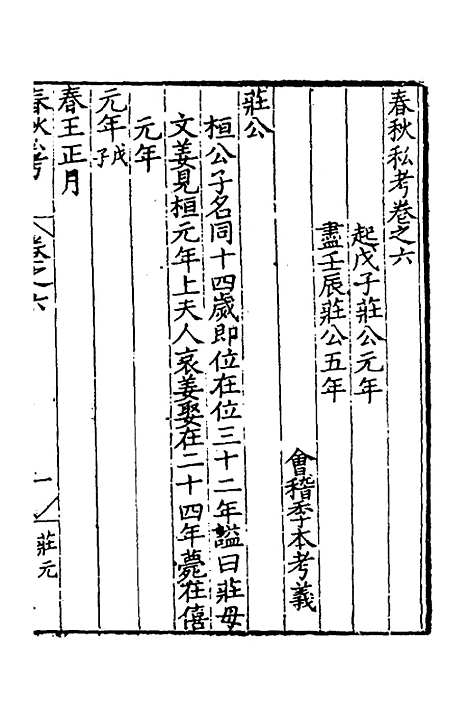 春秋私考卷之六
起戊子莊公元年
盡壬辰莊公五年
會稽季本考義
莊公
桓公子名同十四歲即位在位三十二年謚曰莊母
文姜見桓元年上夫人哀姜娶在二十四年薨在僖
元年
元年戊子
春王正月
春秋私考
卷之六
一
莊元